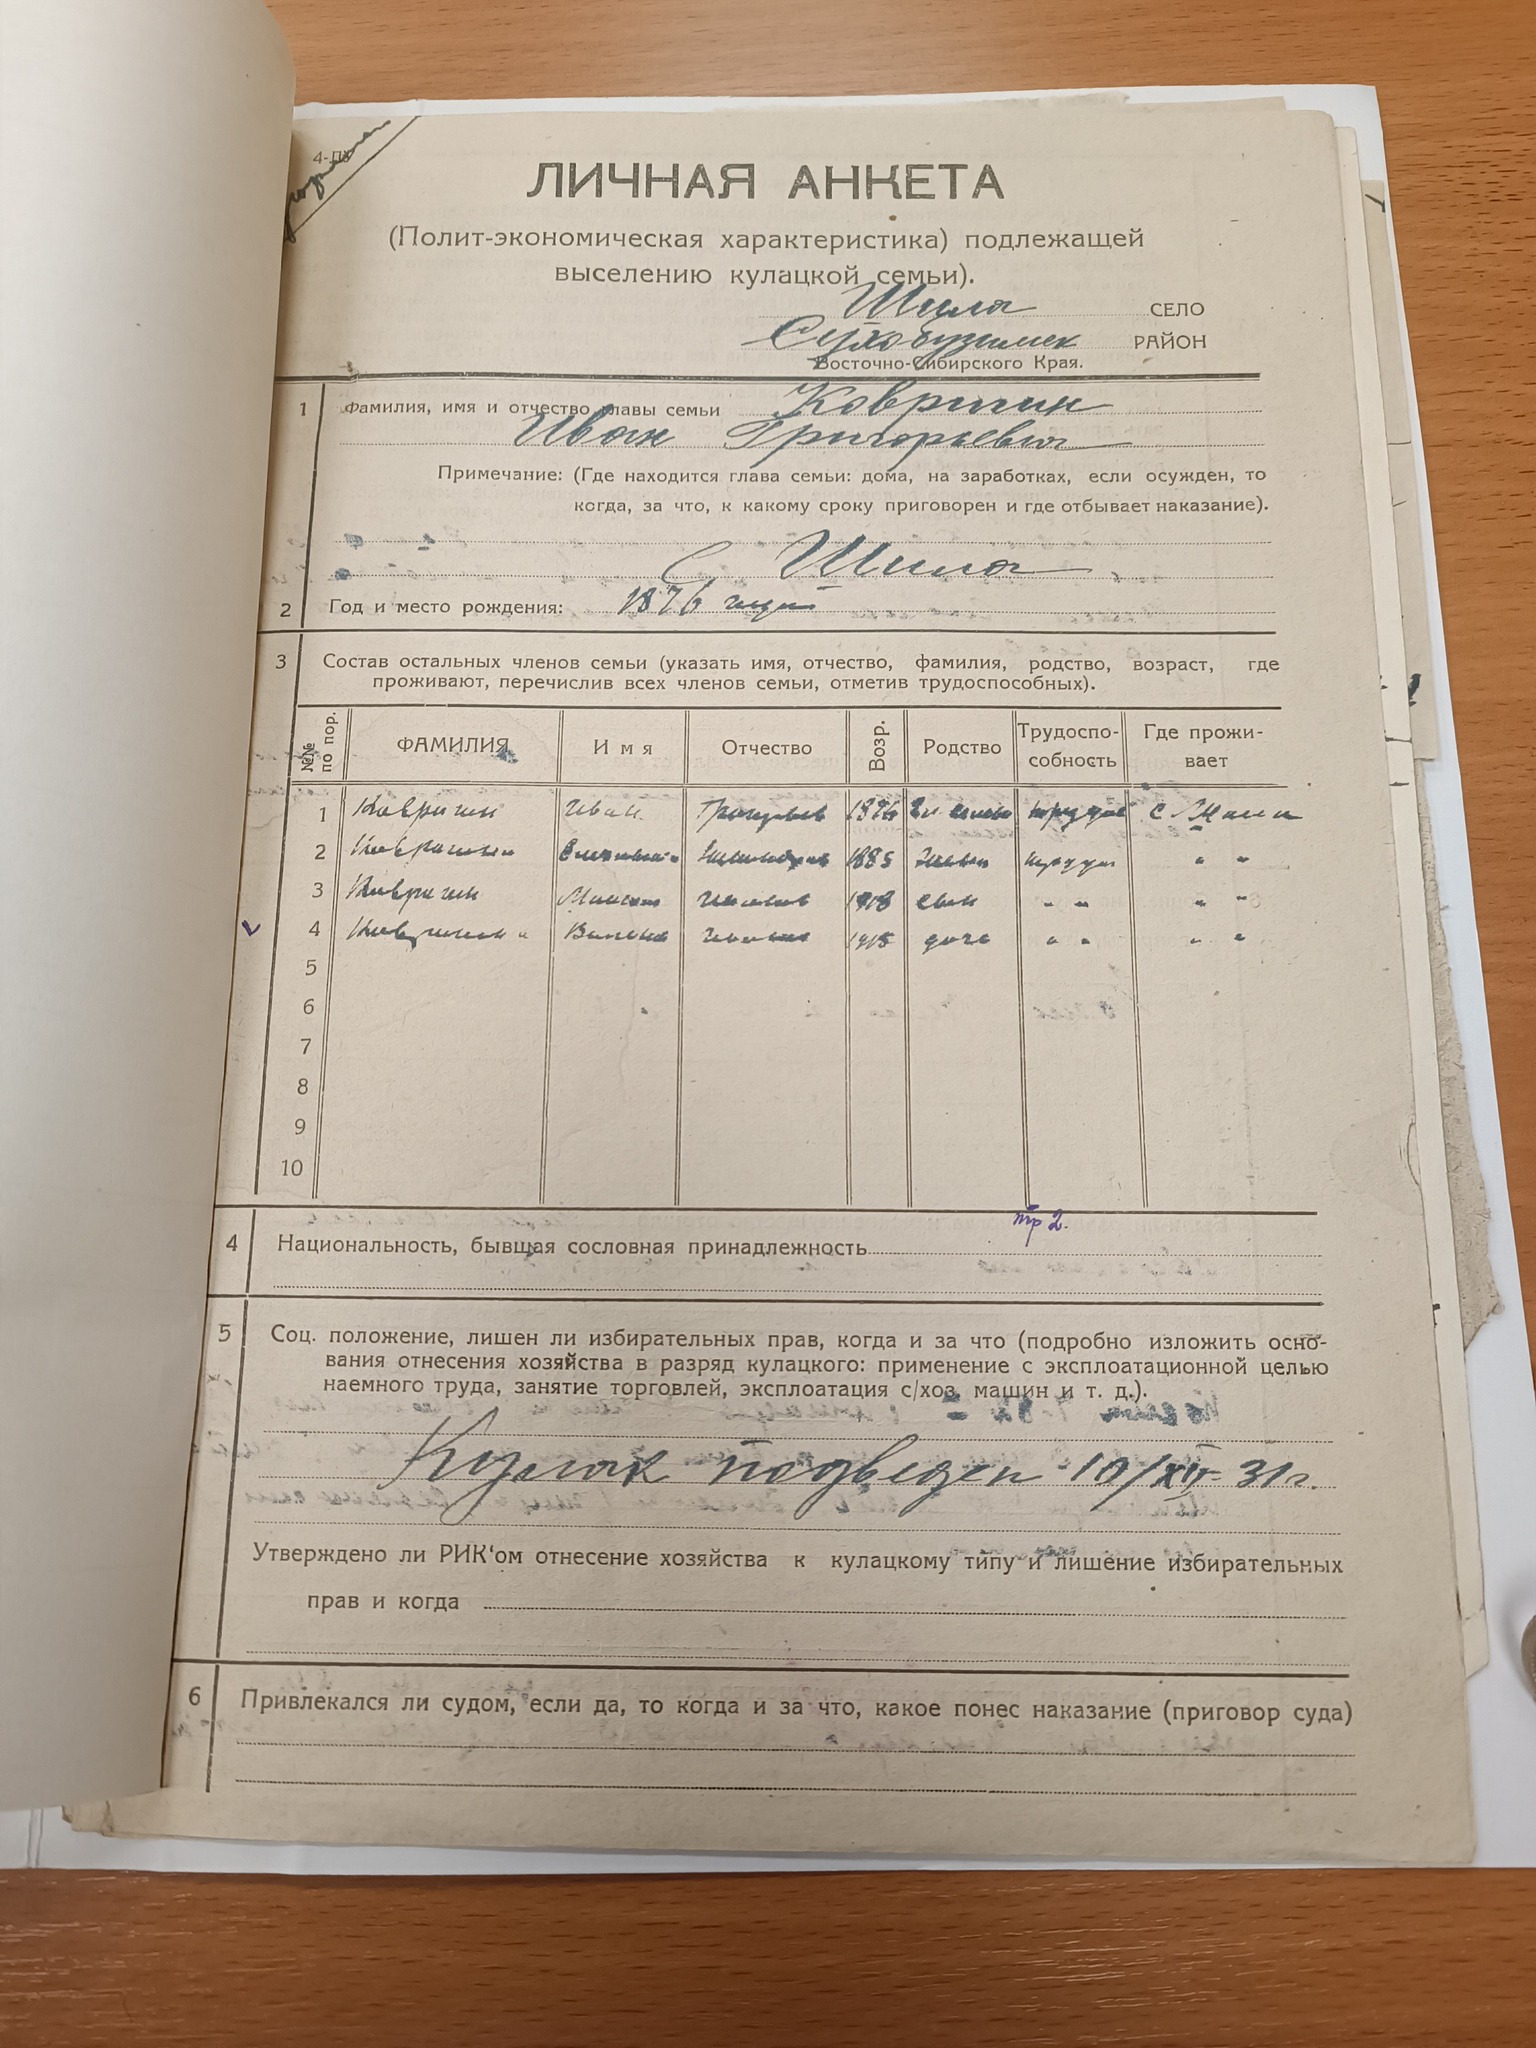 4-П
ЛИЧНАЯ АНКЕТА
(Полит-экономическая характеристика) подлежащей
выселению кулацкой семьи).
Шила СЕЛО
Сухобузимск РАЙОН
Восточно-Сибирского Края.
1 Фамилия, имя и отчество главы семьи Ковригин
Иван Григорьевич
Примечание: (Где находится глава семьи: дома, на заработках, если осужден, то
когда, за что, к какому сроку приговорен и где отбывает наказание).
с Шила
2 Год и место рождения: 1876
3 Состав остальных членов семьи (указать имя, отчество, фамилия, родство, возраст, где
проживают, перечислив всех членов семьи, отметив трудоспособных).
№№ по пор. ФАМИЛИЯ Имя Отчество Возр. Родство Трудоспо-собность Где прожи-вает
1 Ковригин Иван 1876 с Шила
2 Ковригина 1885 " "
3 Ковригин сын " " " "
4 Ковригина доч " " " "
5
6
7
8
9
10
тр 2.
4 Национальность, бывщая сословная принадлежность
5 Соц. положение, лишен ли избирательных прав, когда и за что (подробно изложить осно-
вания отнесения хозяйства в разряд кулацкого: применение с эксплоатационной целью
наемного труда, занятие торговлей, эксплоатация с/хоз. машин и т. д.).
Кулак подведен 10/XII-31г.
Утверждено ли РИК'ом отнесение хозяйства к кулацкому типу и лишение избирательных
прав и когда
6 Привлекался ли судом, если да, то когда и за что, какое понес наказание (приговор суда)